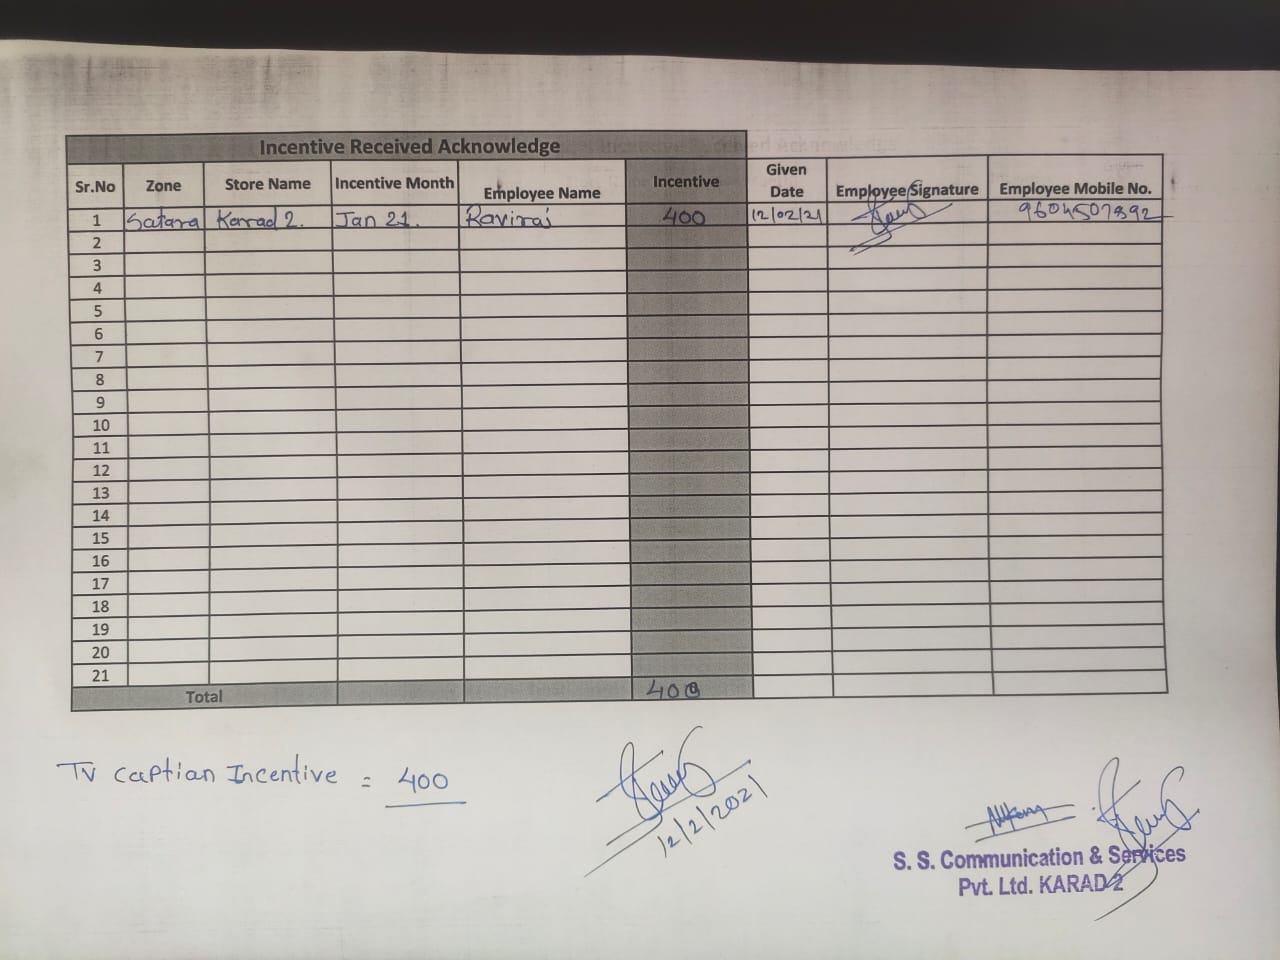 Incentive Received Acknowledge
Sr.No Zone Store Name Incentive Month Employee Name Incentive Given Date Employee Signature Employee Mobile No.
1 Satara Karad 2. Jan 21. Raviraj 400 12/02/21 9604507892
2
3
4
5
6
7
8
9
10
11
12
13
14
15
16
17
18
19
20
21
Total 400
TV Caption Incentive = 400
12/2/2021
S. S. Communication & Services
Pvt. Ltd. KARAD 2